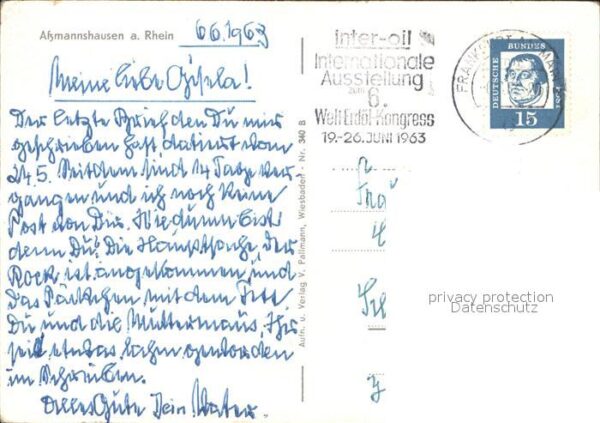 Aßmannshausen a. Rhein
6.6.1963
Meine liebe Gisela!
Der letzte Brief den Du mir
geschrieben hast datiert vom
24.5. Seitdem sind 14 Tage ver-
gangen und ich noch keine
Post von Dir. Wie dünn bist
denn Du? Die Hauptsache, der
Rock ist angekommen, und
das Päckchen mit dem
Du und die Muttermaus, Ihr
seid etwas geworden
im Schreiben.
Alles Gute Dein Vater.
Aufn. u. Verlag V. Pallmann, Wiesbaden - Nr. 340 B
inter-oil
Internationale
Ausstellung
zum
6.
Welt Erdöl-Kongress
19.-26. JUNI 1963
FRANKFURT AM MAIN
DEUTSCHE BUNDES
POST
15
privacy protection
Datenschutz